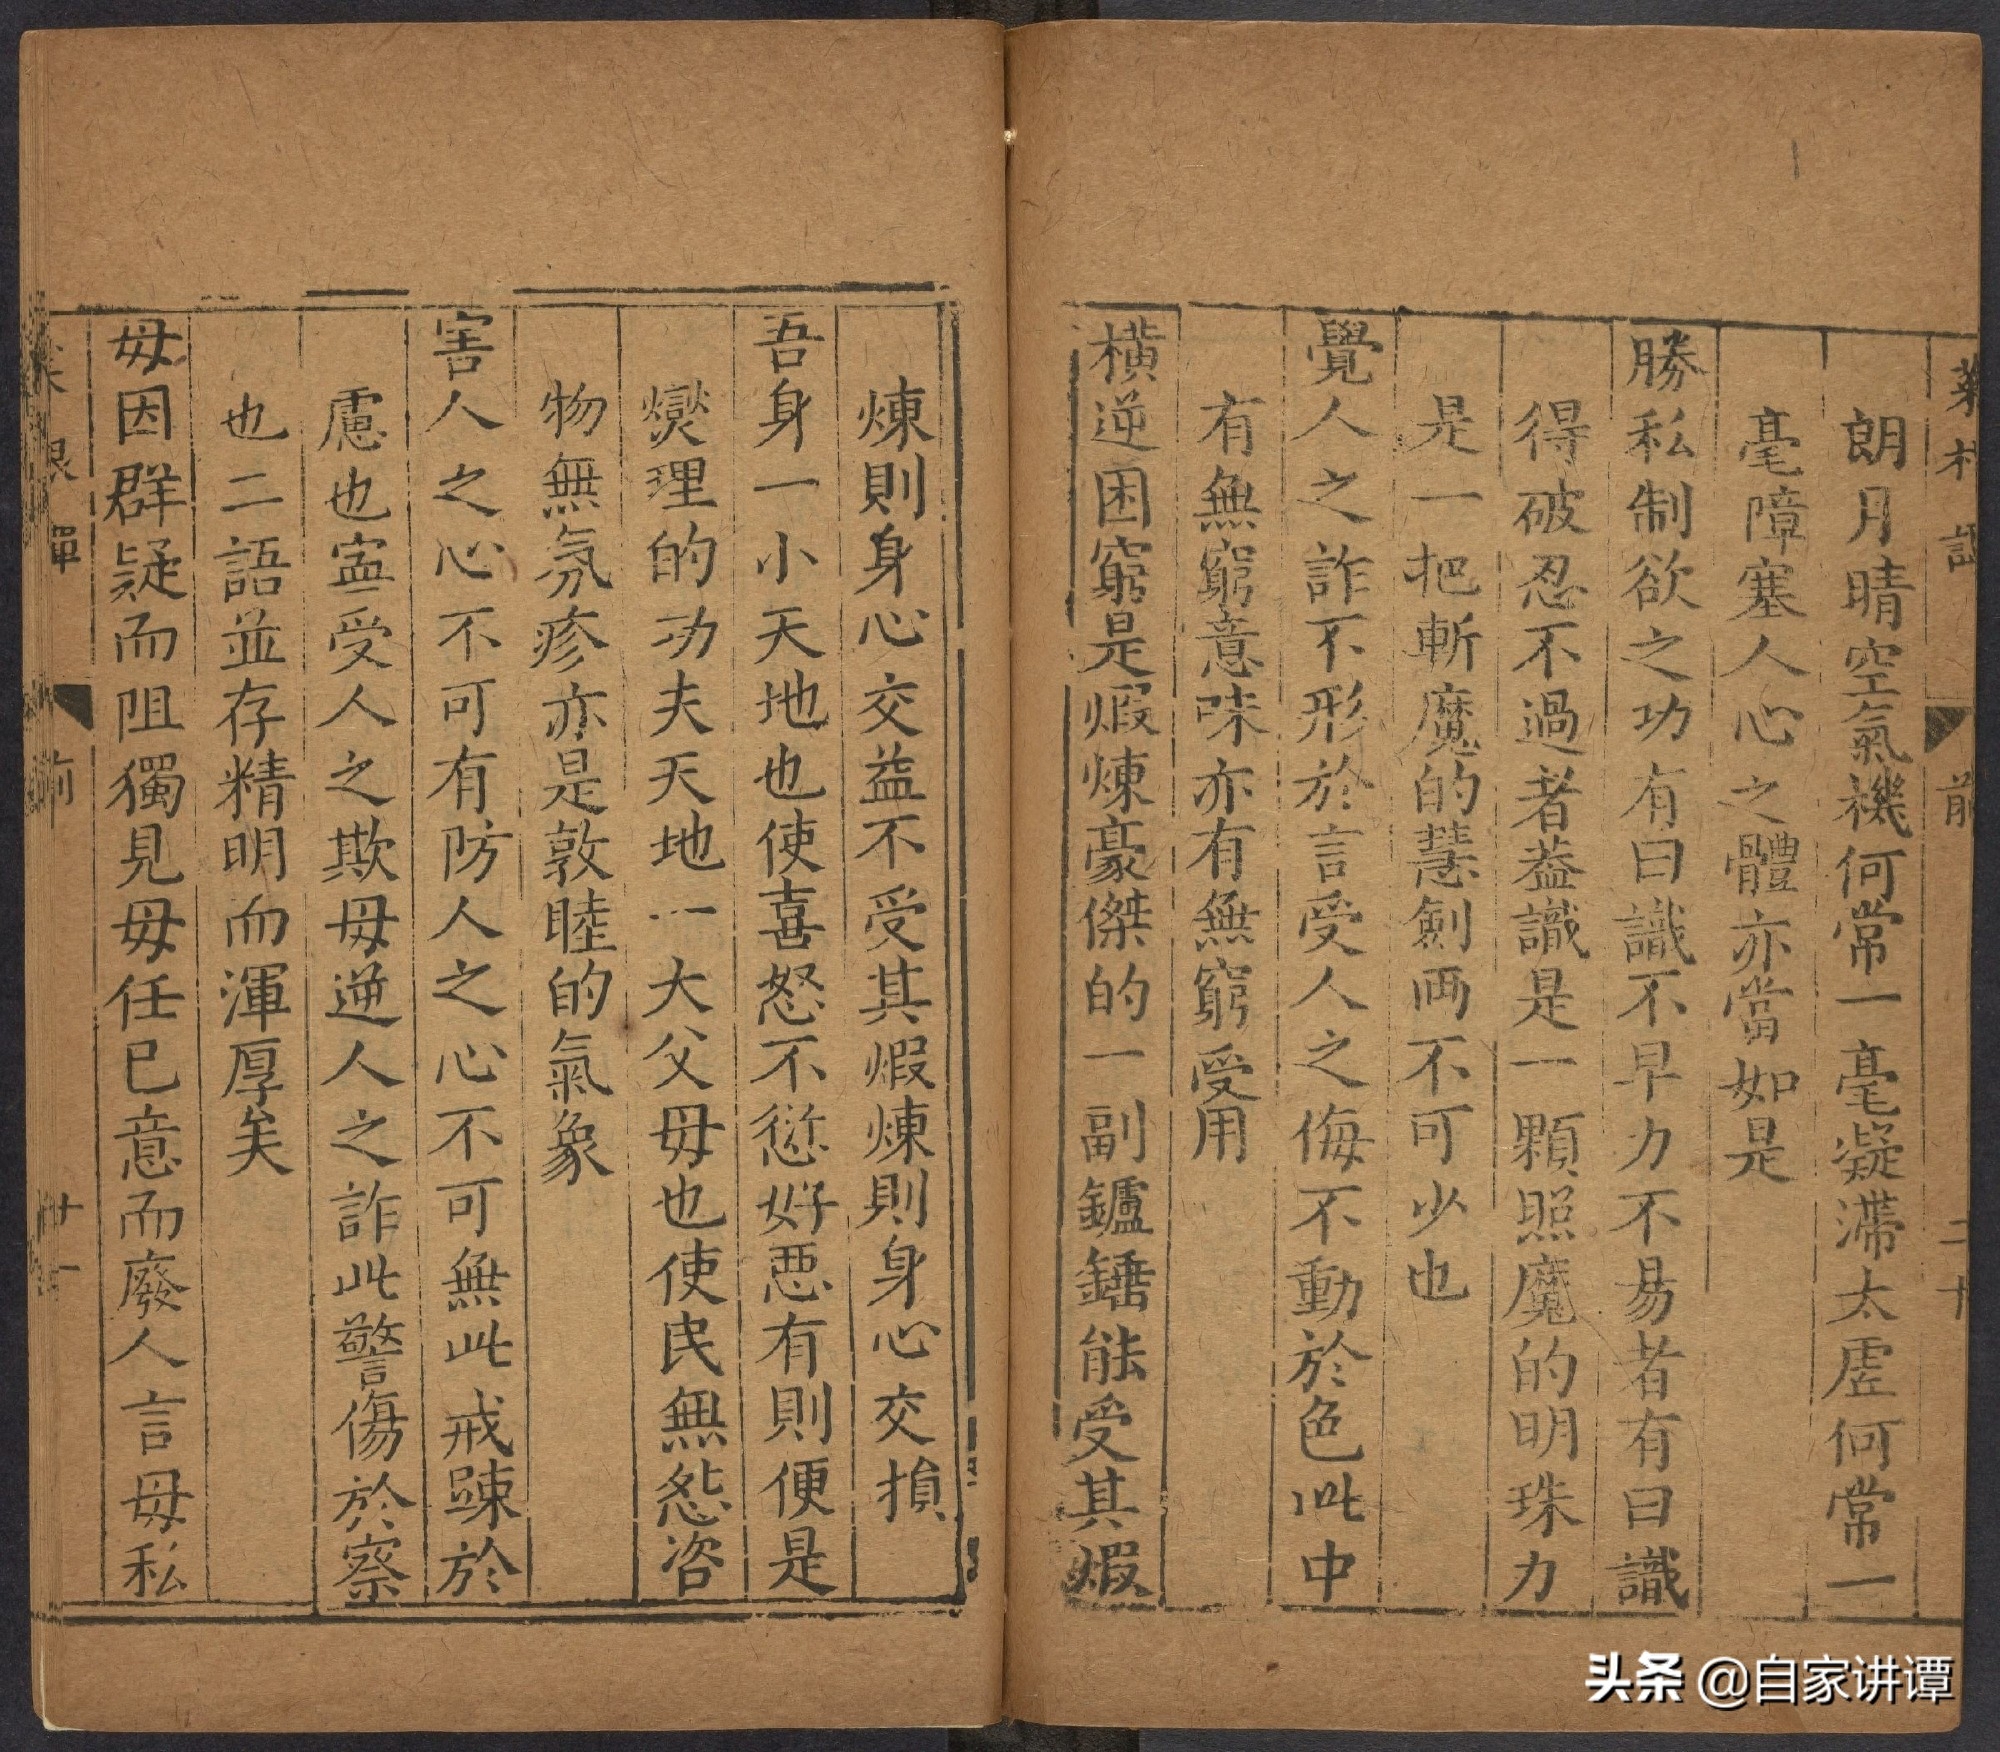 菜根譚 前 二十
朗月晴空氣機何常一毫凝滯太虗何常一
毫障塞人心之體亦當如是
勝私制欲之功有曰識不早力不易者有曰識
得破忍不過者葢識是一顆照魔的明珠力
是一把斬魔的慧劍兩不可少也
覺人之詐不形於言受人之侮不動於色此中
有無窮意味亦有無窮受用
橫逆困窮是煆煉豪傑的一副鑪錘能受其煆
煉則身心交益不受其煆煉則身心交損
吾身一小天地也使喜怒不愆好惡有則便是
燮理的功夫天地一大父母也使民無怨咨
物無氛疹亦是敦睦的氣象
害人之心不可有防人之心不可無此戒踈於
慮也寍受人之欺毋逆人之詐此警傷於察
也二語並存精明而渾厚矣
毋因群疑而阻獨見毋任已意而廢人言毋私
根譚 前 廿一
头条 @自家讲谭